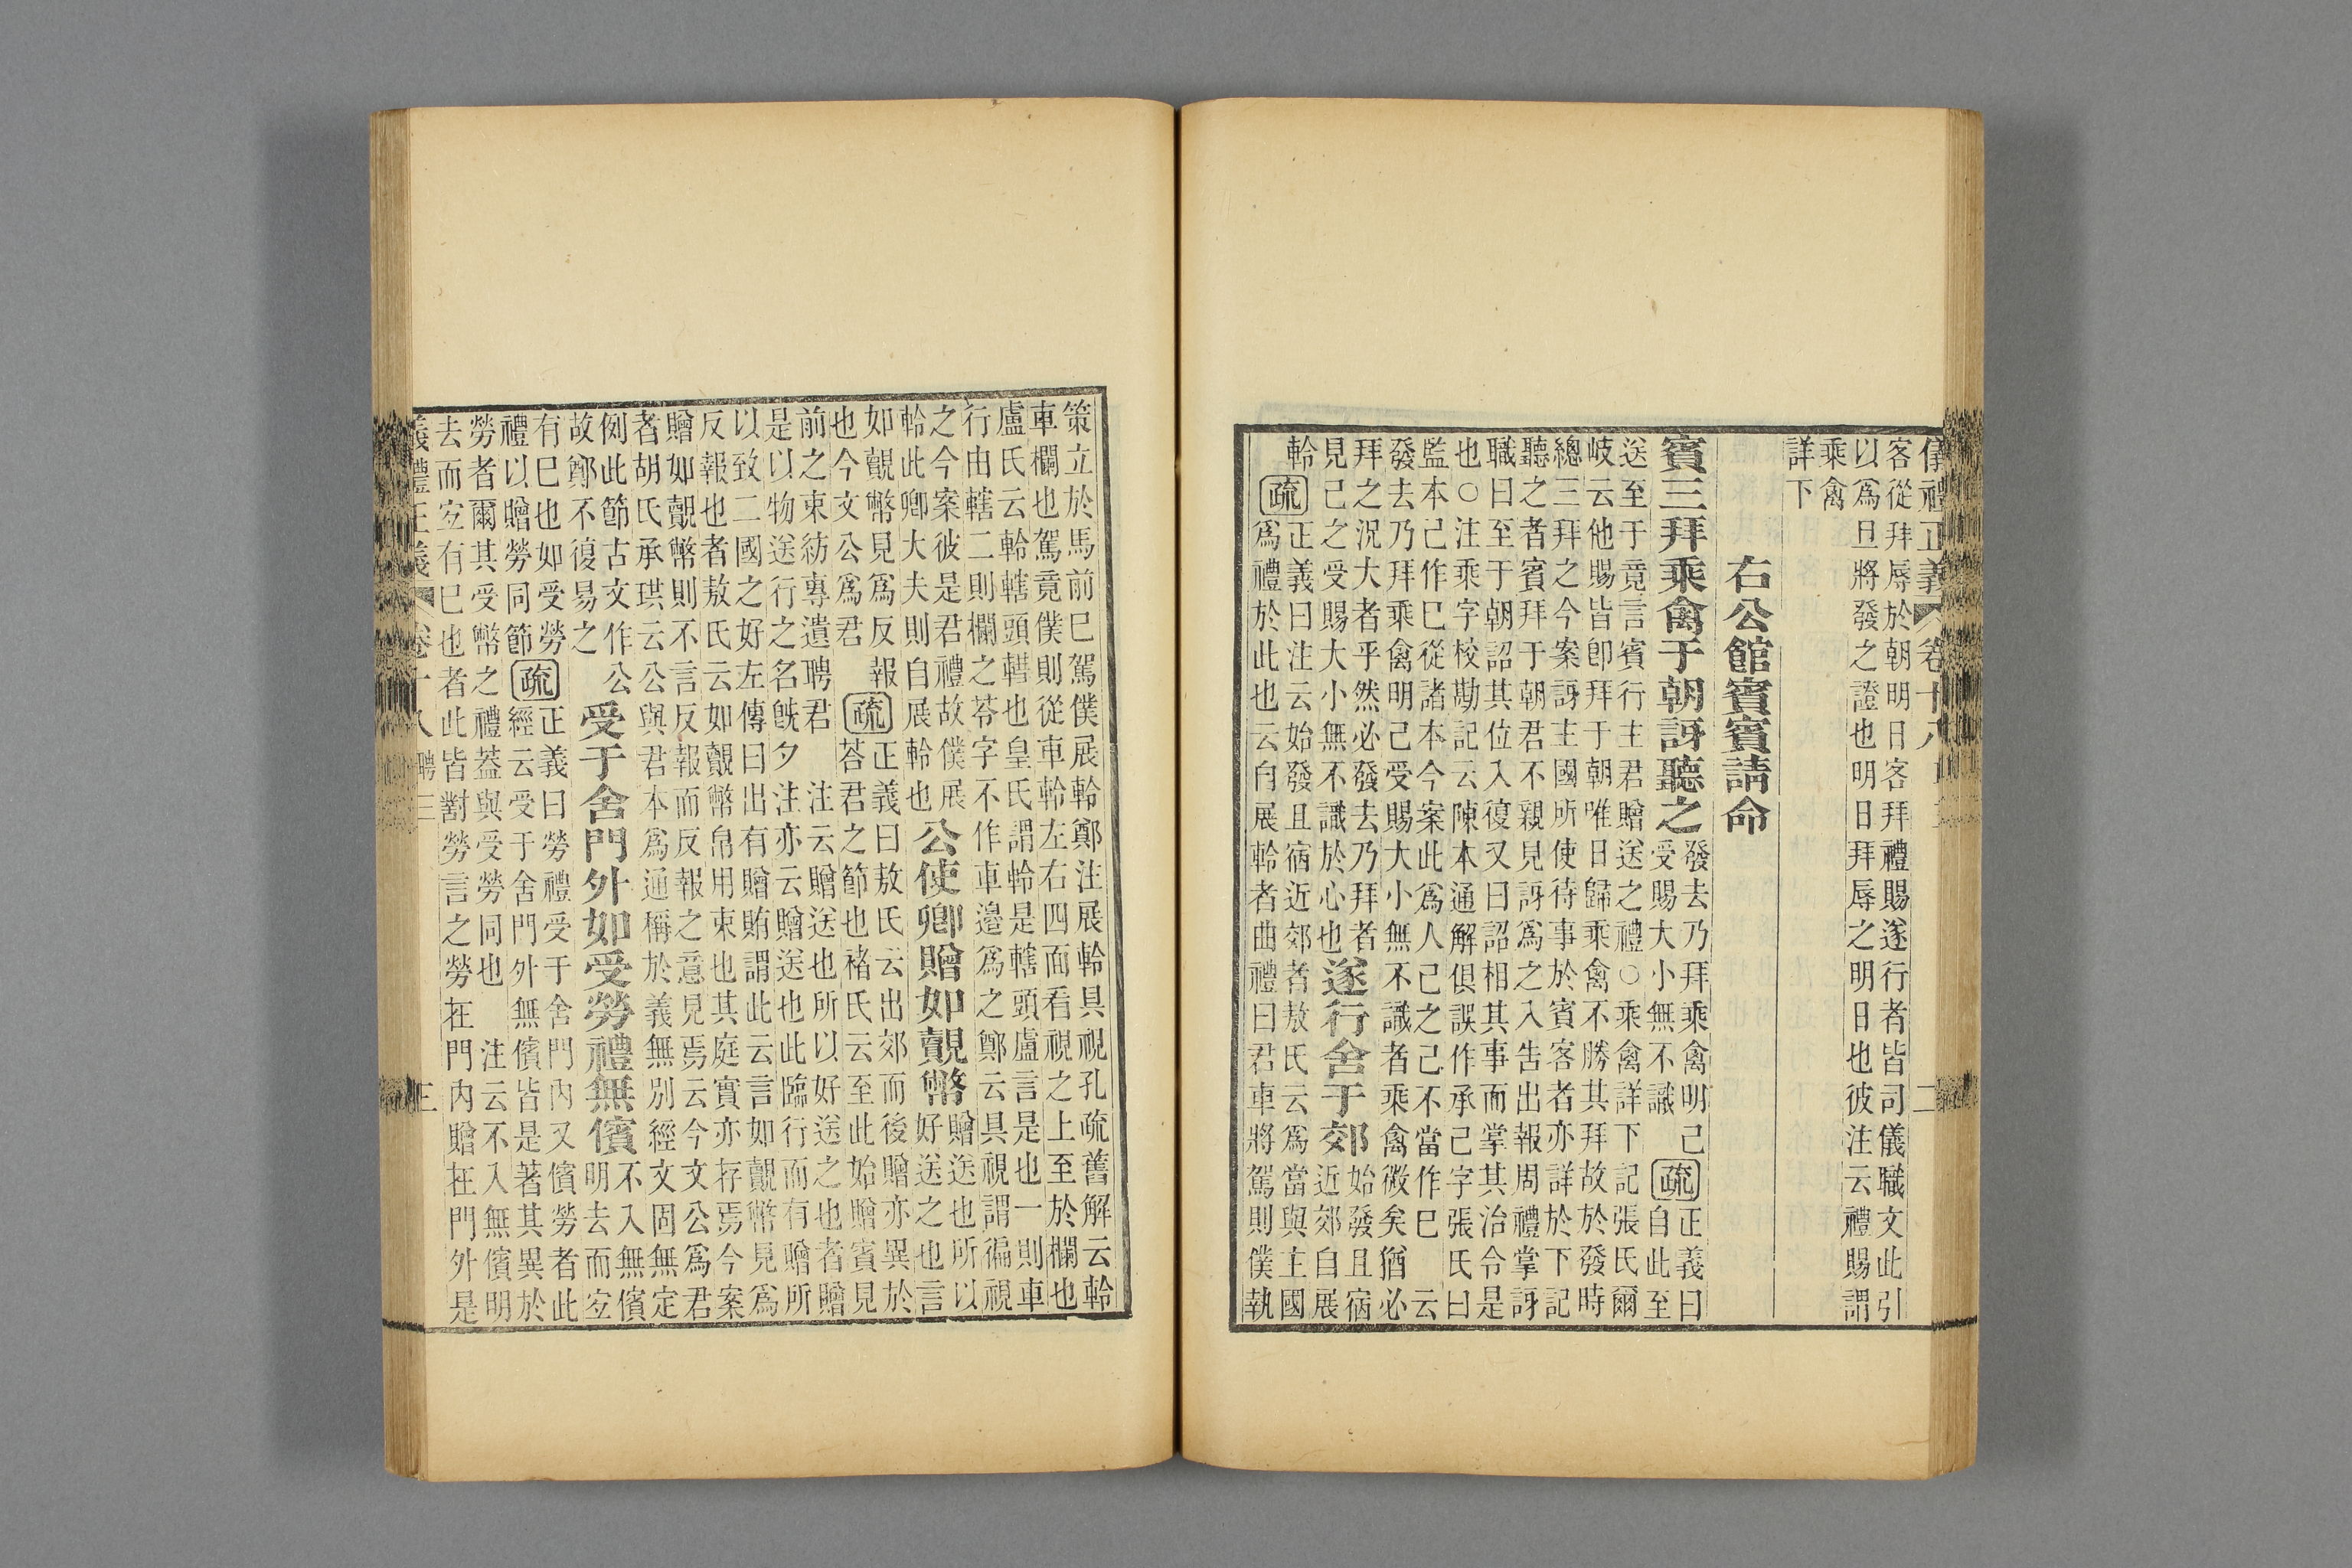 儀禮正義 卷十八 二
客從拜辱於朝明日客拜禮賜遂行者皆司儀職文此引
以爲旦將發之證也明日拜辱之明日也彼注云禮賜謂
乘禽
詳下
右公館賓賓請命
賓三拜乘禽于朝訝聽之
發去乃拜乘禽明己
受賜大小無不識
疏
正義曰
自此至
送至于竟言賓行主君贈送之禮○乘禽詳下記張氏爾
岐云他賜皆卽拜于朝唯日歸乘禽不勝其拜故於發時
總三拜之今案訝主國所使待事於賓客者亦詳於下記
聽之者賓拜于朝君不親見訝爲之入告出報周禮掌訝
職曰至于朝詔其位入復又曰詔相其事而掌其治令是
也○注乘字校勘記云陳本通解俱誤作承己字張氏曰
監本己作巳從諸本今案此爲人己之己不當作巳 云
發去乃拜乘禽明己受賜大小無不識者乘禽微矣猶必
拜之況大者乎然必發去乃拜者
見己之受賜大小無不識於心也
遂行舍于郊
始發且宿
近郊自展
軨
疏
正義曰注云始發且宿近郊者敖氏云爲當與主國
爲禮於此也云自展軨者曲禮曰君車將駕則僕執
策立於馬前已駕僕展軨鄭注展軨具視孔疏舊解云軨
車欄也駕竟僕則從車軨左右四面看視之上至於欄也
盧氏云軨轄頭轊也皇氏謂軨是轄頭盧言是也一則車
行由轄二則欄之苓字不作車邊爲之鄭云具視謂徧視
之今案彼是君禮故僕展
軨此卿大夫則自展軨也
公使卿贈如覿幣
贈送也所以
好送之也言
如覿幣見爲反報
也今文公爲君
疏
正義曰敖氏云出郊而後贈亦異於
荅君之節也褚氏云至此始贈賓見
前之束紡專遺聘君 注云贈送也所以好送之也者贈
是以物送行之名旣夕注亦云贈送也此臨行而有贈所
以致二國之好左傳曰出有贈賄謂此云言如覿幣見爲
反報也者敖氏云如覿幣帛用束也其庭實亦存焉今案
贈如覿幣則不言反報而反報之意見焉云今文公爲君
者胡氏承珙云公與君本爲通稱於義無別經文固無定
例此節古文作公
故鄭不復易之
受于舍門外如受勞禮無儐
不入無儐
明去而宜
有已也如受勞
禮以贈勞同節
疏
正義曰勞禮受于舍門內又儐勞者此
經云受于舍門外無儐皆是著其異於
勞者爾其受幣之禮蓋與受勞同也 注云不入無儐明
去而宜有已也者此皆對勞言之勞在門內贈在門外是
義禮正義 卷十八 聘三 三